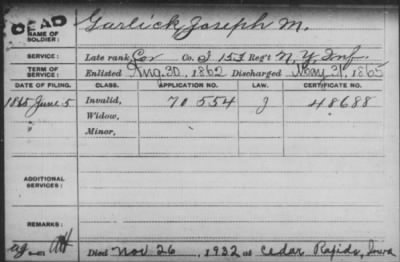 DEAD
NAME OF SOLDIER: Garlick, Joseph M.
SERVICE: Late rank Cor Co. I 153 Reg't N.Y. Inf.
TERM OF SERVICE: Enlisted Aug. 30, 1862 Discharged May 31, 1865
DATE OF FILING. CLASS. APPLICATION NO. LAW. CERTIFICATE NO.
1865 June 5 Invalid, 70 554 J 48688
" Widow,
Minor,
ADDITIONAL SERVICES:
REMARKS:
Died Nov. 26, 1932 at Cedar Rapids, Iowa